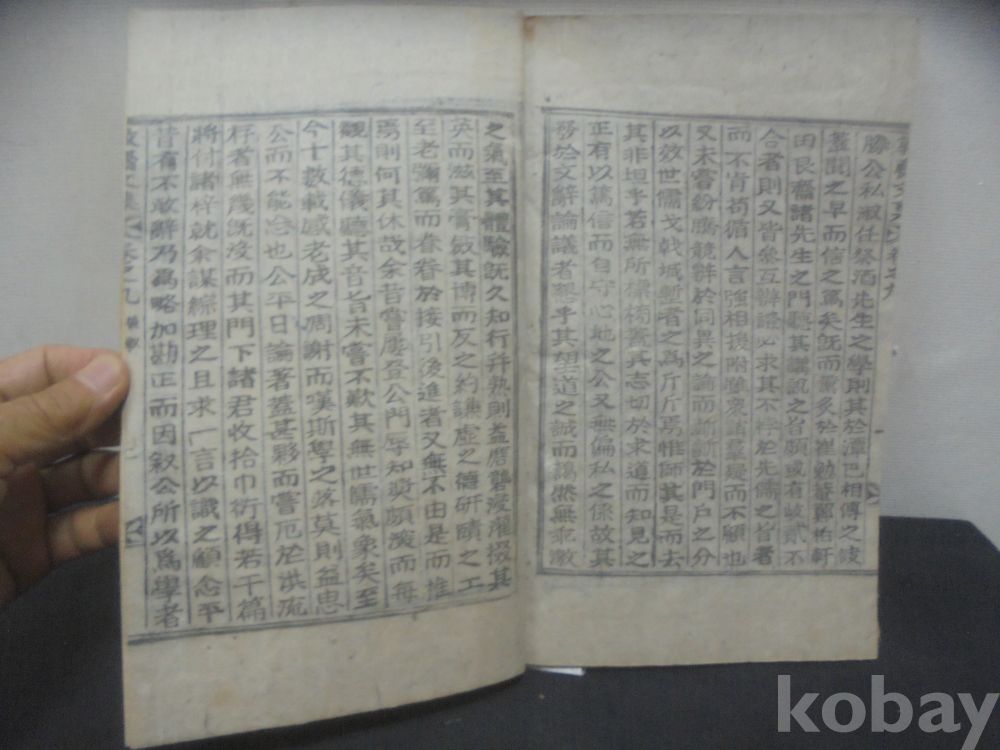 勝公私淑任祭酒先生之學則其於潭巴相傳之訣
蓋聞之早而信之篤矣旣而薰炙於崔勉菴鄭柏軒
田艮齋諸先生之門聽其講說之旨頗或有岐貳不
合者則又皆參互辯證必求其不悖於先儒之旨者
而不肯苟循人言強相援附雖衆諸羣疑而不顧也
又未嘗紛騰競辯於同異之論而斷斷於門戶之分
以效世儒戈戟城塹者之爲斤斤焉惟師其是而去
其非坦乎若無所梁檎蓋其志切於求道而知見之
正有以篤信而自守心地之公又無偏私之係故其
發於文辭論議者懇乎其望道之誠而謁然無乖激
之氣至其體驗旣久知行幷熟則益磨礱浸灌掇其
英而滋其膏敏其博而反之約謙虛之德硏賾之工
至老彌篤而眷眷於接引後進者又無不由是而推
焉則何其休哉余昔嘗屢登公門辱知奬顔湥而每
觀其德儀聽其音旨未嘗不歎其無世儒氣象矣至
今十數載感老成之周謝而嘆斯學之落莫則益思
公而不能忘也公平日論著蓋甚夥而嘗厄於洪流
存者無幾旣沒而其門下諸君收拾巾衍得若干篇
將付諸梓就余謀綜理之且求一言以識之顧念平
昔有不敢辭乃爲略加勘正而因敍公所以爲學者
文集 卷之九
kobay